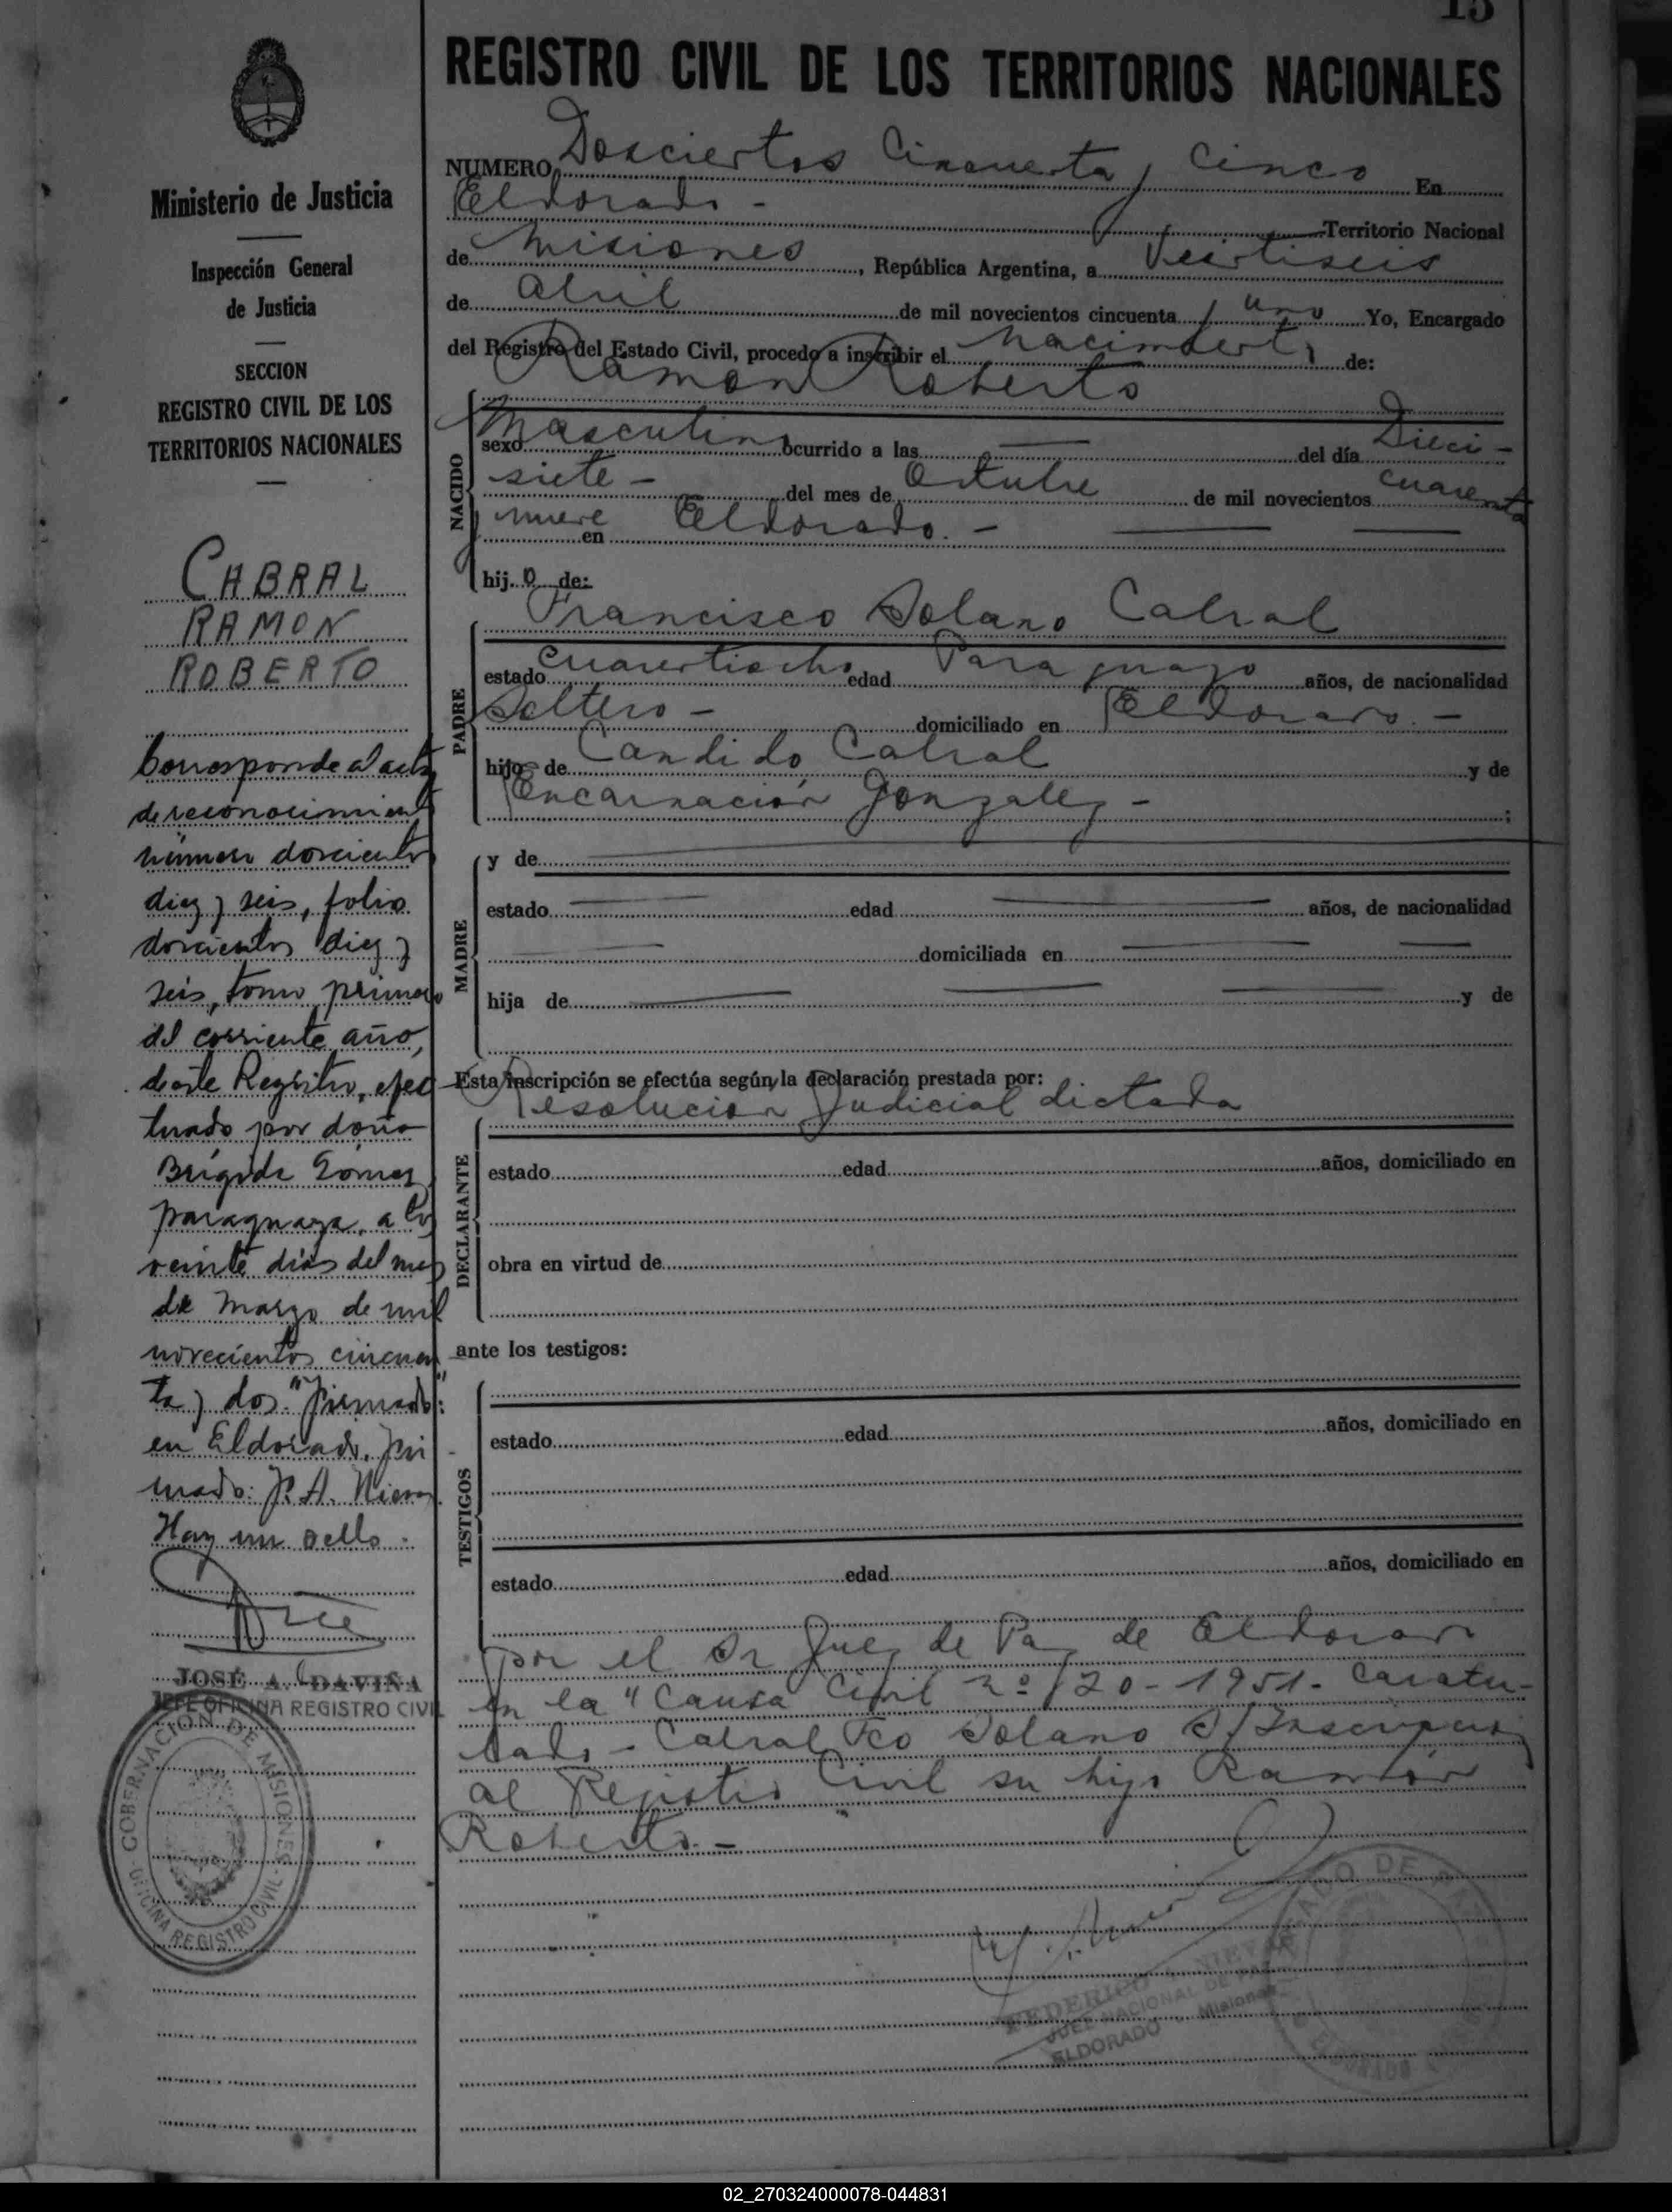 15
REGISTRO CIVIL DE LOS TERRITORIOS NACIONALES
Ministerio de Justicia
Inspección General
de Justicia
SECCION
REGISTRO CIVIL DE LOS
TERRITORIOS NACIONALES
CABRAL
RAMON
ROBERTO
Corresponde al acta
de reconocimient
número doscientos
diez y seis, folio
doscientos diez y
seis, tomo primero
del corriente año,
de este Registro, efec
tuado por doña
Brígida Gómez
paraguaya, a los
veinte días del mes
de marzo de mil
novecientos cincuen
ta y dos. "firmado":
en Eldorado, fir
mado: A. Nieva
Hay un sello.
JOSÉ A. DAVIÑA
JEFE OFICINA REGISTRO CIVIL
GOBERNACION DE MISIONES
OFICINA REGISTRO CIVIL
NUMERO Doscientos Cincuenta y Cinco En
Eldorado - Territorio Nacional
de Misiones, República Argentina, a Veintiseis
de Abril de mil novecientos cincuenta y uno Yo, Encargado
del Registro del Estado Civil, procedo a inscribir el nacimiento de:
Ramon Roberto
NACIDO
sexo Masculino ocurrido a las — del día Dieci-
siete - del mes de Octubre de mil novecientos cuarenta
y nueve en Eldorado. -
hijo de:
Francisco Solano Cabral
PADRE
estado cuarentiocho edad Paraguayo años, de nacionalidad
Soltero - domiciliado en Eldorado. -
hijo de Candido Cabral y de
Encarnación Gonzalez - ;
MADRE
y de
estado — edad — años, de nacionalidad
— domiciliada en —
hija de — y de
Esta inscripción se efectúa según la declaración prestada por:
Resolucion Judicial dictada
DECLARANTE
estado edad años, domiciliado en
obra en virtud de
ante los testigos:
TESTIGOS
estado edad años, domiciliado en
estado edad años, domiciliado en
por el Sr Juez de Paz de Eldorado
en la "Causa Civil nº 120-1951- caratu-
lado - Cabral Fco Solano S/Inscripcion
al Registro Civil su hijo Ramón
Roberto. -
FEDERICO NIEVA
JUEZ NACIONAL DE PAZ
ELDORADO - Misiones
JUZGADO DE PAZ
ELDORADO
02_270324000078-044831